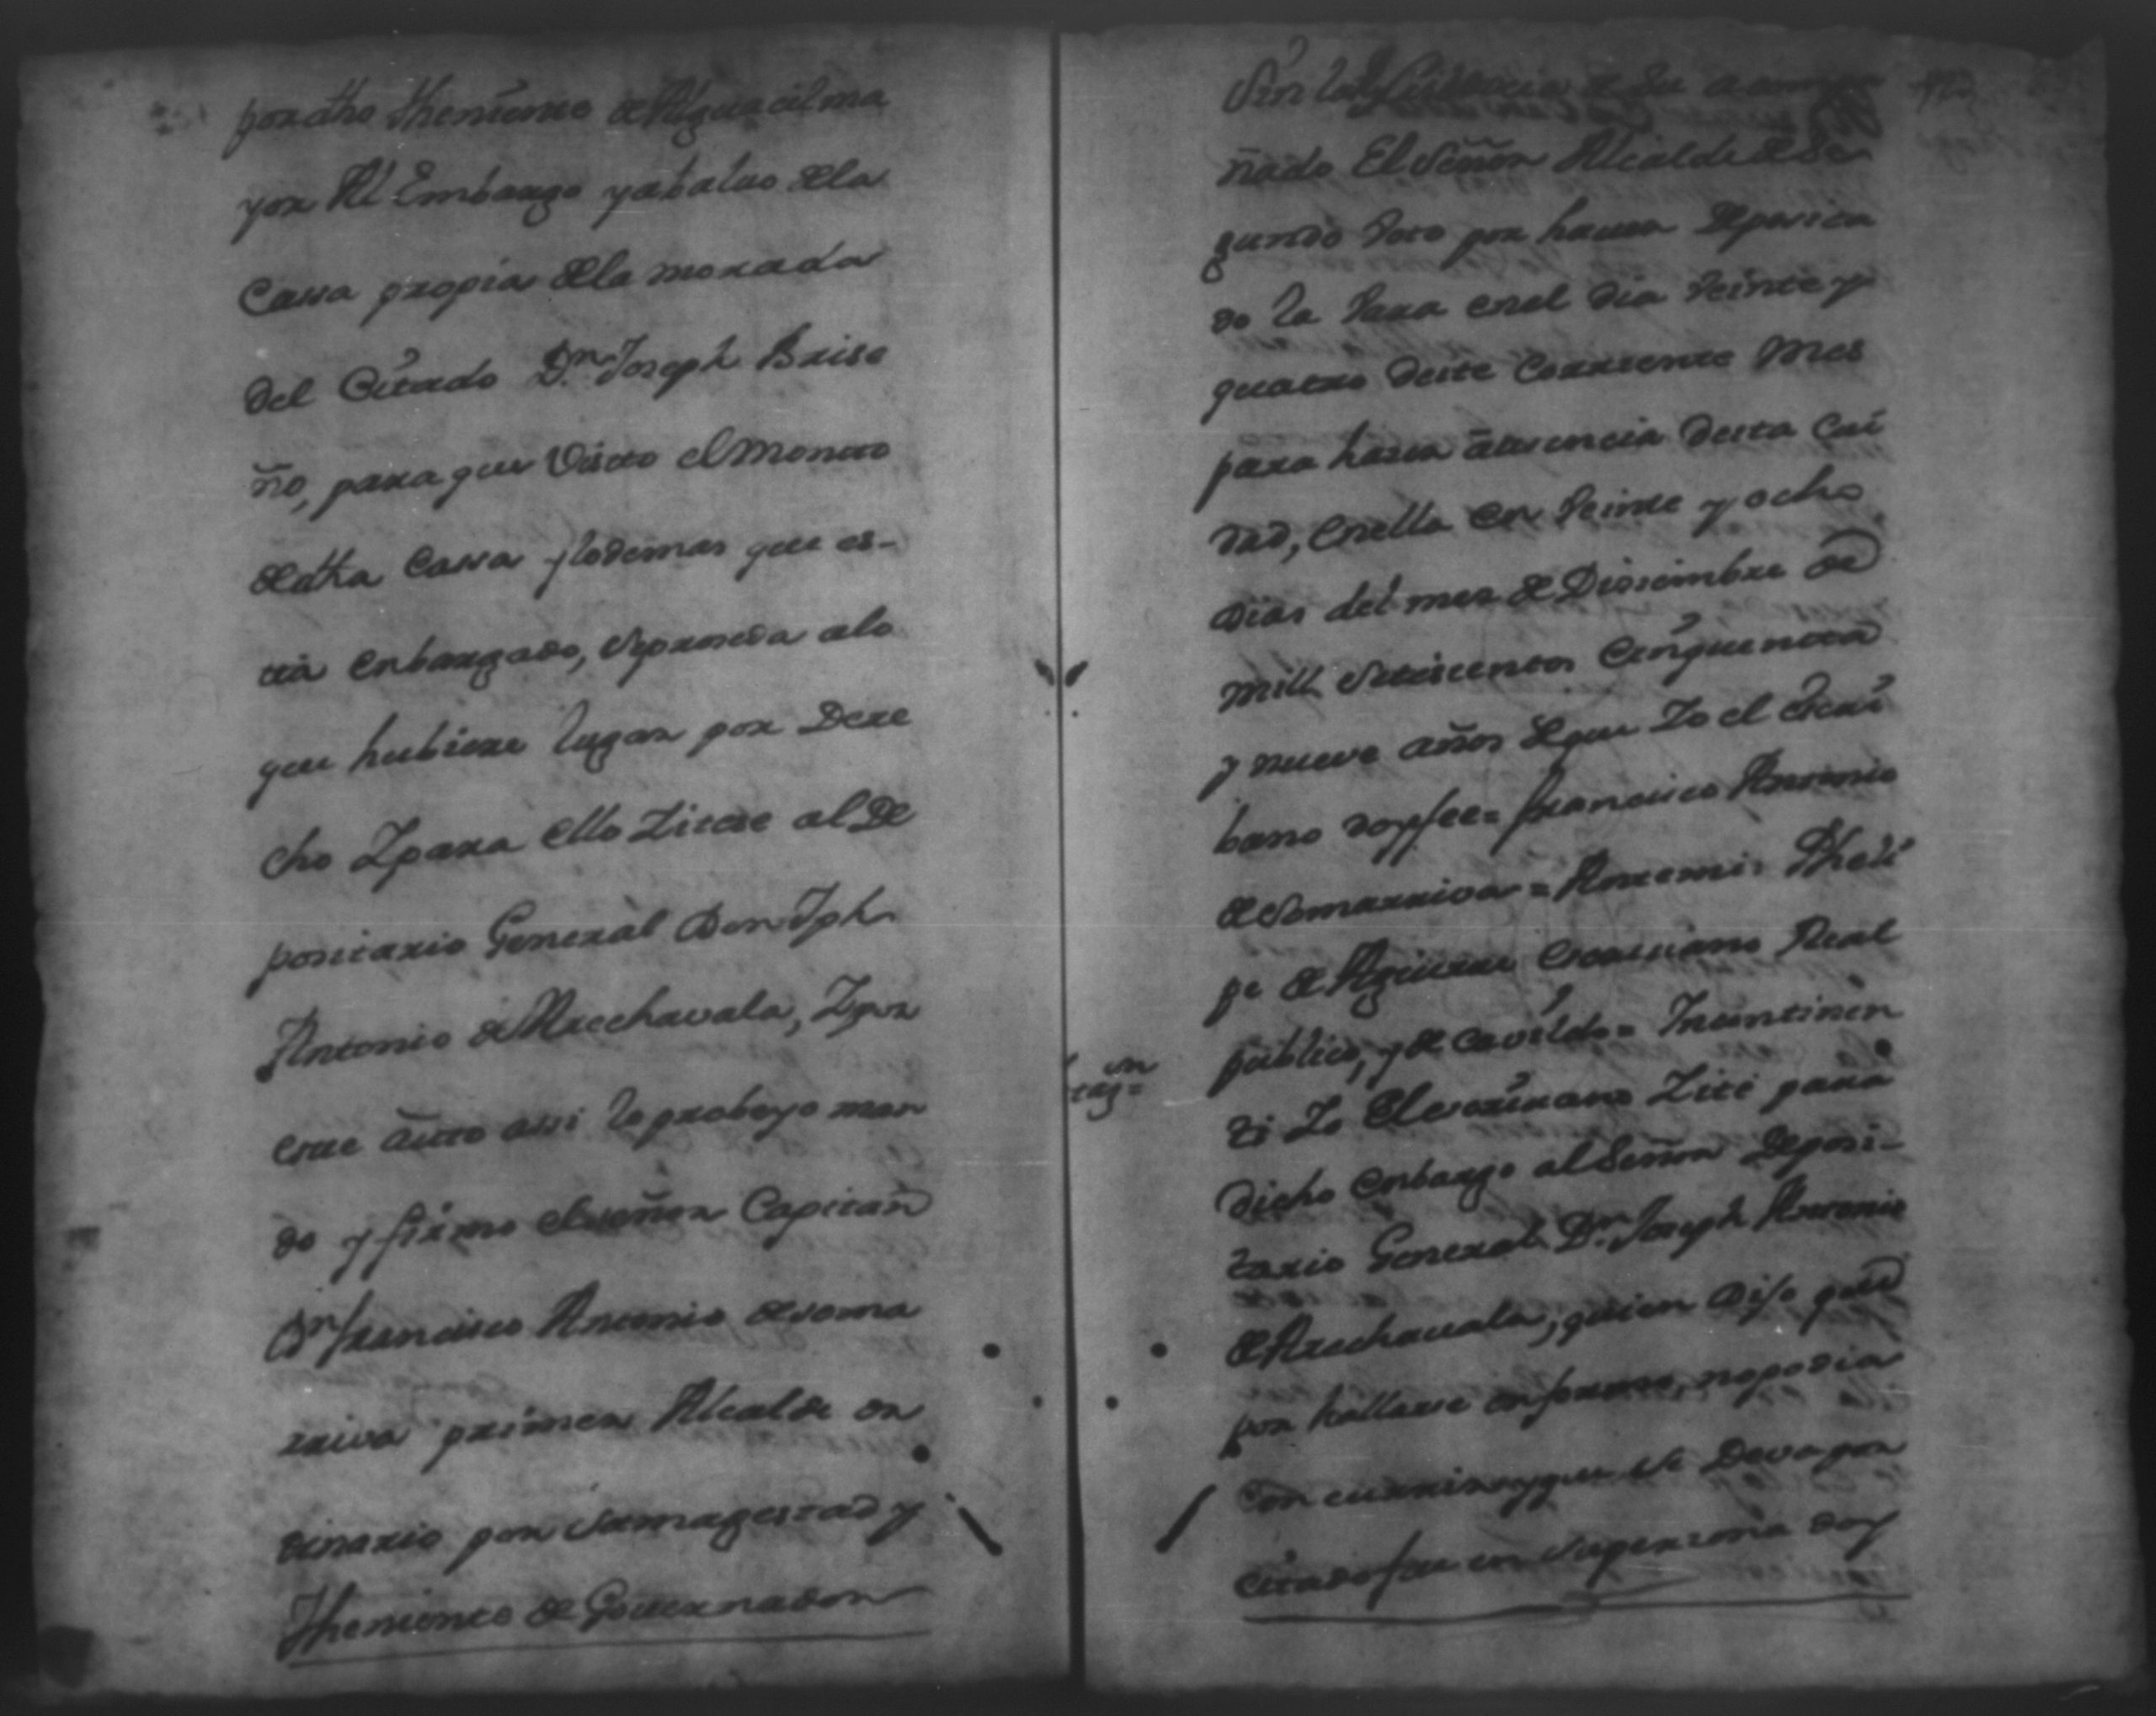 por dho Theniente de Alguacil ma
yor Al Embargo yabaluo dela
Cassa propia dela morada
del Citado Dn. Joseph Brise
ño, para que Visto el Monto
dedha Cassa y lo demas que es-
tta enbargado, se proseda alo
que hubiere lugar por Dere
cho Y para ello Zitese al De
positario General Don Jph
Antonio de Arechavala, Y por
este auto assi lo probeyo man
do y firmo el señor Capitan
Dn francisco Antonio de soma
rriva primer Alcalde or
dinario por su magestad y
Theniente de Governador
Sin la de su acompa
ñado El señor Alcalde de Se
gundo Voto por haver deposita
do la Vara enel dia Veinte y
quatro deste Corriente Mes
para haser ausencia desta Ciu
dad, enella en Veinte y ocho
dias del mes de Disiembre de
mill setesientos Cinquenta
y nueve años de que Yo el escri
bano doy fee = francisco Antonio
de somarriva = Antemi: Pheli
pe de Aguirre escriuano Real
publico, y de cavildo = Incontinen
Citazn =
ti Yo el escrivano Zite para
dicho enbargo al Señor Deposi-
tario General Dn. Joseph Antonio
de Arechauala, quien dijo que
por hallarse enfermo, no podia
con currir y que se Deva por
citado fue en su persona doy